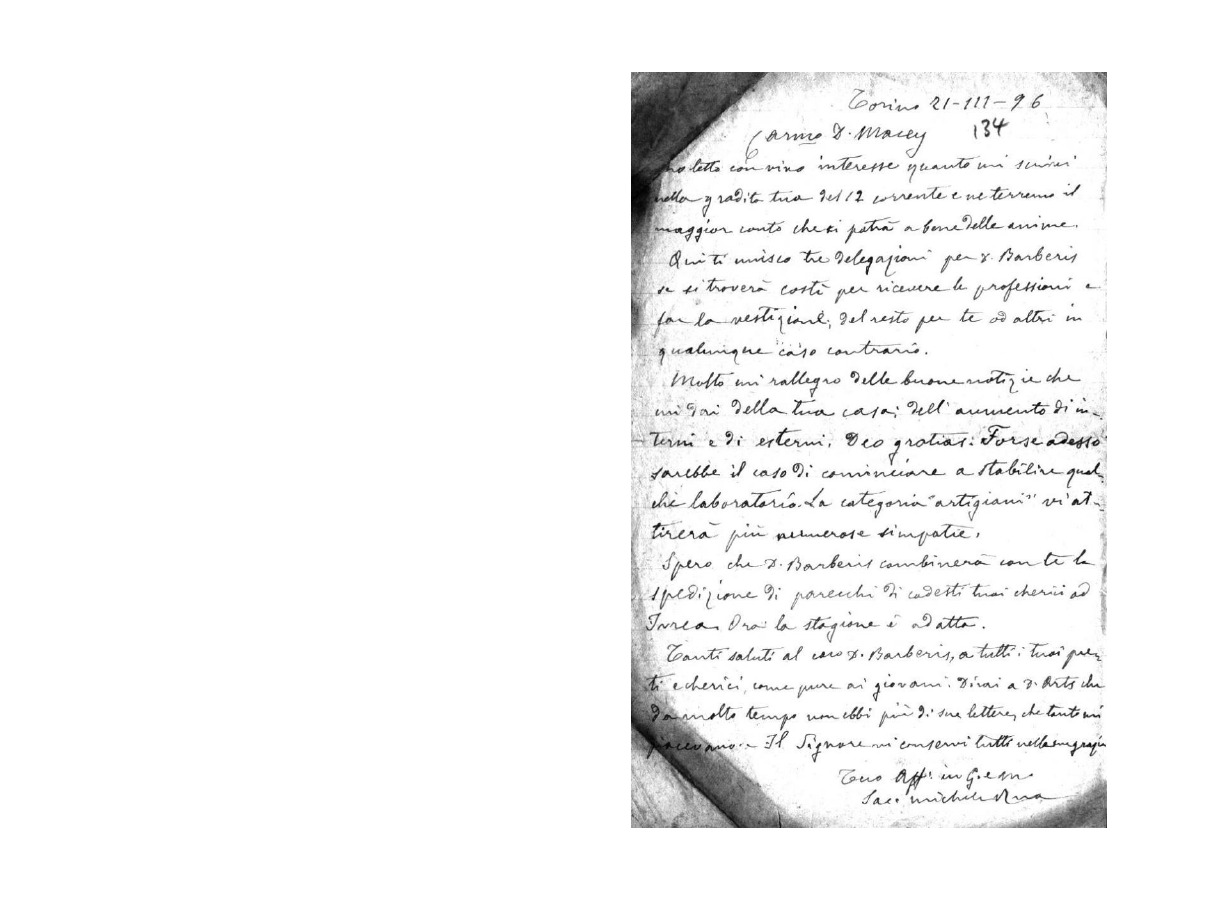 Torino 21-III-96
134
Carmo D. Macey
ho letto con vivo interesse quanto mi scrivi
nella gradita tua del 12 corrente e ne terremo il
maggior conto che si potrà a bene delle anime.
Qui ti unisco tre delegazioni per D. Barberis
se si troverà costì per ricevere le professioni e
far la vestizione, del resto per te od altri in
qualunque caso contrario.
Molto mi rallegro delle buone notizie che
mi dai della tua casa; dell' aumento di in-
terni e di esterni. Deo gratias. Forse adesso
sarebbe il caso di cominciare a stabilire qual-
che laboratorio. La categoria "artigiani" vi at-
tirerà più numerose simpatie.
Spero che D. Barberis combinerà con te la
spedizione di parecchi di codesti tuoi cherici ad
Ivrea. Ora la stagione è adatta.
Tanti saluti al caro D. Barberis, a tutti i tuoi pre-
ti e cherici, come pure ai giovani. Dirai a D. Arts che
da molto tempo non ebbi più di sue lettere, che tanto mi
piacevano. Il Signore vi conservi tutti nella sua grazia
Tuo Aff. in G. e M.
Sac. Michele Rua